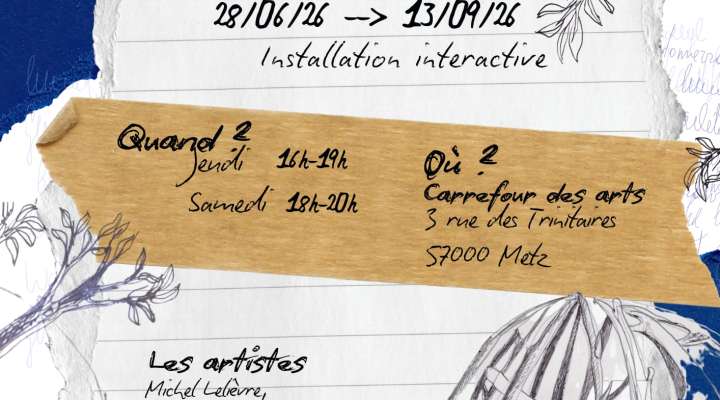 28/06/26 --> 13/09/26
Installation interactive
Quand ?
Jeudi 16h-19h
Samedi 18h-20h
Où ?
Carrefour des arts
3 rue des Trinitaires
57000 Metz
Les artistes
Michel Lelièvre,